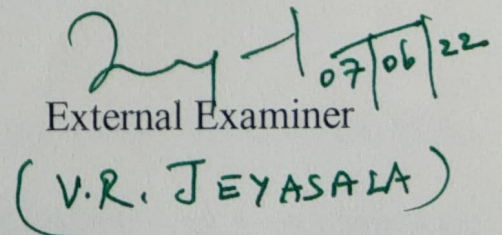 07/06/22
External Examiner
(V.R. JEYASALA)